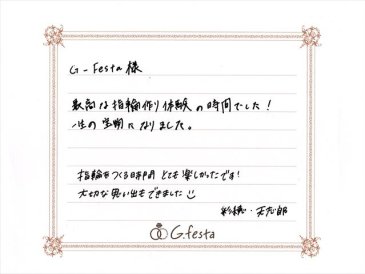 G-Festa 様
最高な指輪作り体験の時間でした！
一生の宝物になりました。
指輪をつくる時間 とても楽しかったです！
大切な思い出もできました
G.festa